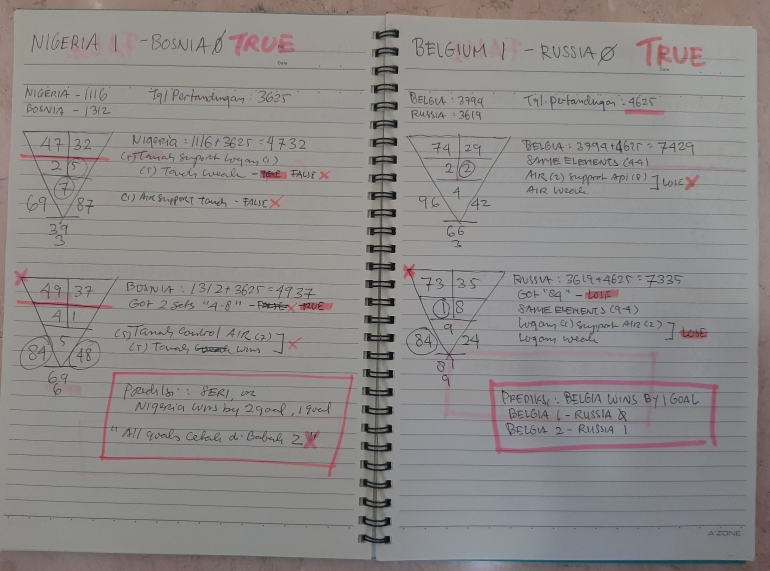 NIGERIA 1 - BOSNIA 0 TRUE
Date
NIGERIA - 1116
BOSNIA - 1312
Tgl Pertandingan : 3625
47 32
2 5
7
69 87
39
3
Nigeria : 1116 + 3625 = 4732
(5) Tanah support Logam (1)
(5) Tanah Weak - FALSE X
(1) AIR Support Tanah - FALSE X
X
49 37
4 1
5
84 48
69
6
BOSNIA : 1312 + 3625 = 4937
GOT 2 sets "4-8" - FALSE X TRUE
(5) Tanah Control AIR (7)
(5) Tanah wins
X
Prediksi : SERI, or
Nigeria wins by 2 goal, 1 goal
"All goals Cetak di Babak 2" X
BELGIUM 1 - RUSSIA 0 TRUE
Date
BELGIA : 3794
RUSSIA : 3619
Tgl. pertandingan : 4625
74 29
2 2
4
96 42
66
3
BELGIA : 3794 + 4625 = 7429
SAME ELEMENTS (44)
AIR (2) Support Api (8)
AIR Weak
LOSE X
X
73 35
1 8
9
84 24
81
9
RUSSIA : 3619 + 4625 = 7335
Got "84" - LOSE
SAME ELEMENTS (9-4)
Logam (1) Support AIR (2)
Logam weak
LOSE
PREDIKSI : BELGIA WINS BY 1 GOAL
BELGIA 1 - RUSSIA 0
BELGIA 2 - RUSSIA 1
A'ZONE